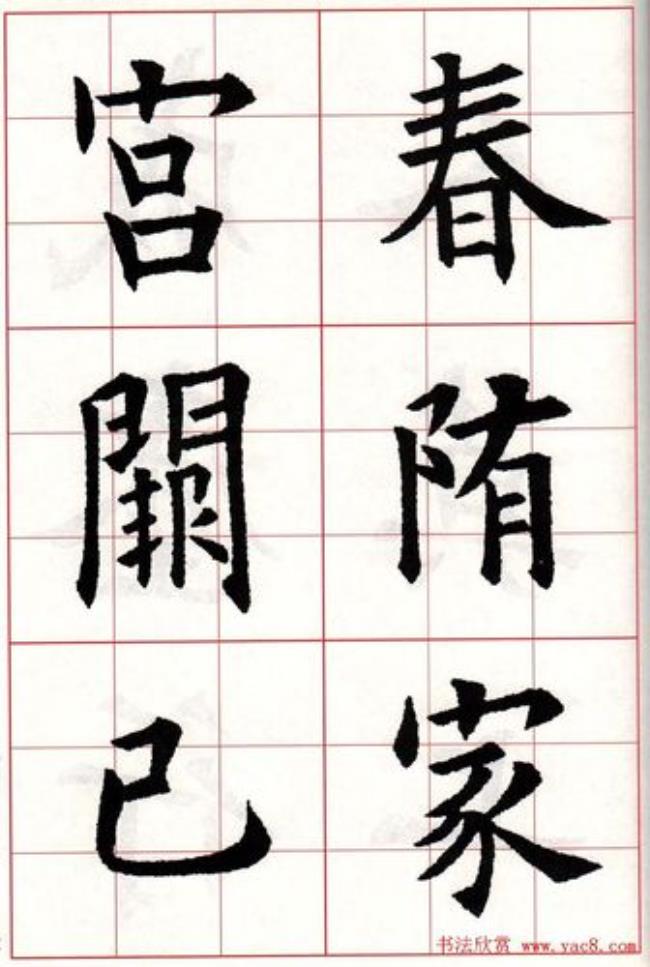 春陏家
宫闕已
书法欣赏 www.yac8.com